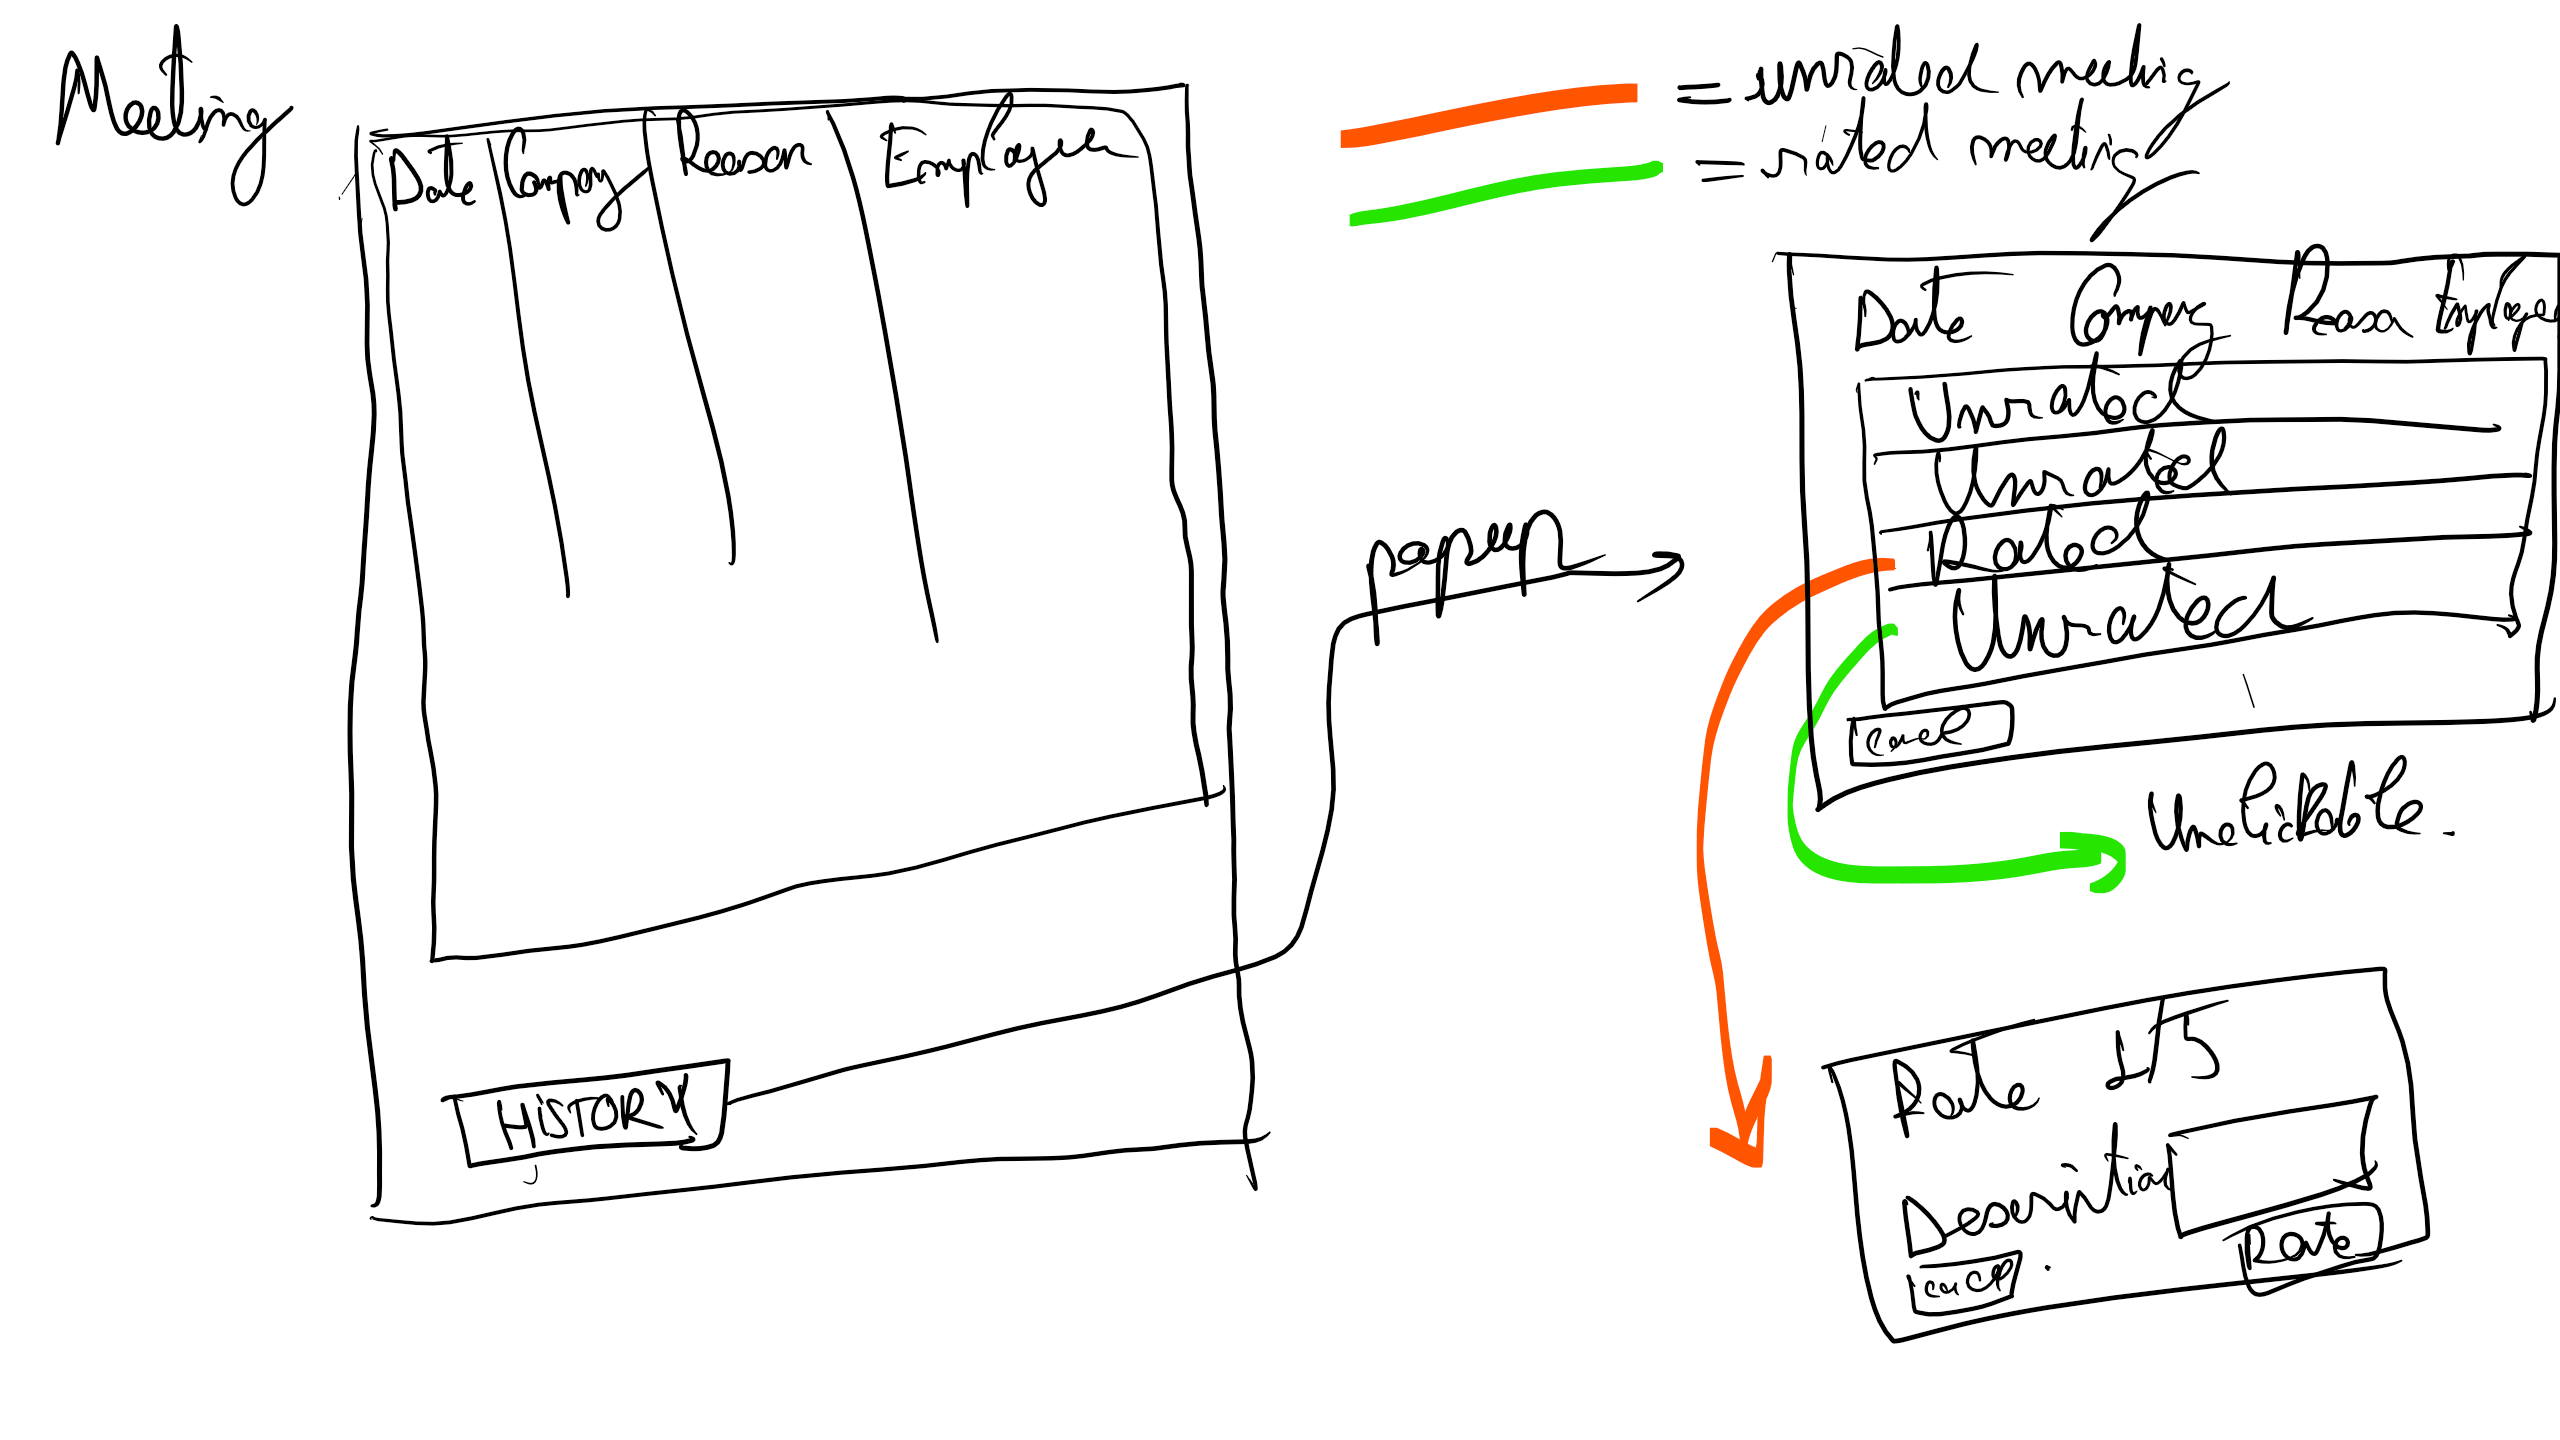 Meeting
Date Company Reason Employee
= unrated meeting
= rated meeting
Date Company Reason Employee
Unrated
Unrated
Rated
Unrated
cancel
popup
Unclickable.
HISTORY
Rate 1/5
Description
cancel Rate